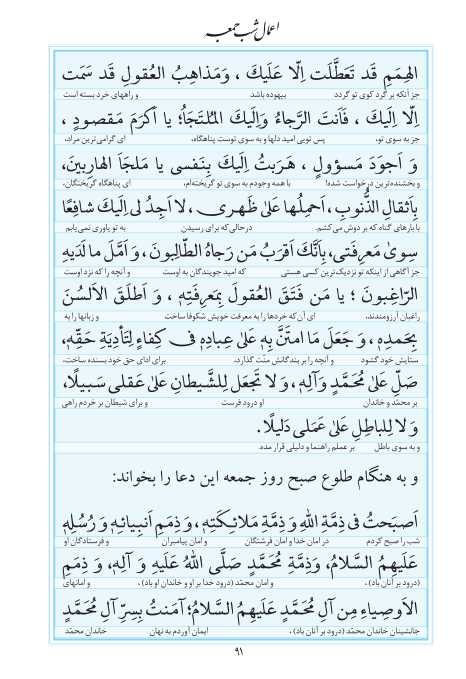 اعمال شب جمعه
الهِمَمِ قَد تَعَطَّلَت اِلّا عَلَيكَ ، وَمَذاهِبُ العُقولِ قَد سَمَت
جز آنکه بر گرد کوی تو گردد بیهوده باشد و راههای خرد بسته است
اِلّا اِلَيكَ ، فَاَنتَ الرَّجاءُ وَاِلَيكَ المُلتَجَأُ؛ يا اَكرَمَ مَقصودٍ ،
جز به سوی تو، پس تویی امید دلها و به سوی توست پناهگاه، ای گرامی‌ترین مراد،
وَ اَجوَدَ مَسؤولٍ ، هَرَبتُ اِلَيكَ بِنَفسى يا مَلجَاَ الهارِبينَ،
و بخشنده‌ترین درخواست شده! با همه وجودم به سوی تو گریخته‌ام، ای پناهگاه گریختگان،
بِاَثقالِ الذُّنوبِ، اَحمِلُها عَلىٰ ظَهرى ، لا اَجِدُ لى اِلَيكَ شافِعًا
با بارهای گناه که بر دوش می‌کشم. درحالی‌که برای رسیدن به تو یاوری نمی‌یابم
سِوىٰ مَعرِفَتى، بِاَنَّكَ اَقرَبُ مَن رَجاهُ الطّالِبونَ، وَ اَمَّلَ ما لَدَيهِ
جز آگاهی از اینکه تو نزدیک‌ترین کسی هستی که امید جویندگان به اوست و آنچه را که نزد اوست
الرّاغِبونَ ؛ يا مَن فَتَقَ العُقولَ بِمَعرِفَتِهٖ ، وَ اَطلَقَ الاَلسُنَ
راغبان آرزومندند، ای آن‌که خردها را به معرفت خویش شکوفا ساخت و زبانها را به
بِحَمدِهٖ، وَ جَعَلَ مَا امتَنَّ بِهٖ عَلىٰ عِبادِهٖ فى كِفاءٍ لِتَأدِيَةِ حَقِّهٖ،
ستایش خود گشود و آنچه را بر بندگانش منّت گذارد، برای ادای حق خود بسنده ساخت،
صَلِّ عَلىٰ مُحَمَّدٍ وَآلِهٖ، وَ لا تَجعَل لِلشَّيطانِ عَلىٰ عَقلى سَبيلًا،
بر محمّد و خاندان او درود فرست و برای شیطان بر خردم راهی
وَ لا لِلباطِلِ عَلىٰ عَمَلى دَليلًا.
و به سوی باطل بر عملم راهنما و دلیلی قرار مده.
و به هنگام طلوع صبح روز جمعه این دعا را بخواند:
اَصبَحتُ فى ذِمَّةِ اللهِ وَ ذِمَّةِ مَلائِكَتِهٖ، وَ ذِمَمِ اَنبِيائِهٖ وَ رُسُلِهٖ
شب را صبح کردم در امان خدا و امان فرشتگان و امان پیامبران و فرستادگان او
عَلَيهِمُ السَّلامُ، وَذِمَّةِ مُحَمَّدٍ صَلَّى اللهُ عَلَيهِ وَ آلِهٖ، وَ ذِمَمِ
(درود بر آنان باد) ، و امان محمّد (درود خدا بر او و خاندان او باد) ، و امانهای
الاَوصِياءِ مِن آلِ مُحَمَّدٍ عَلَيهِمُ السَّلامُ؛ آمَنتُ بِسِرِّ آلِ مُحَمَّدٍ
جانشینان خاندان محمّد (درود بر آنان باد) ، ایمان آوردم به نهان خاندان محمّد
۹۱